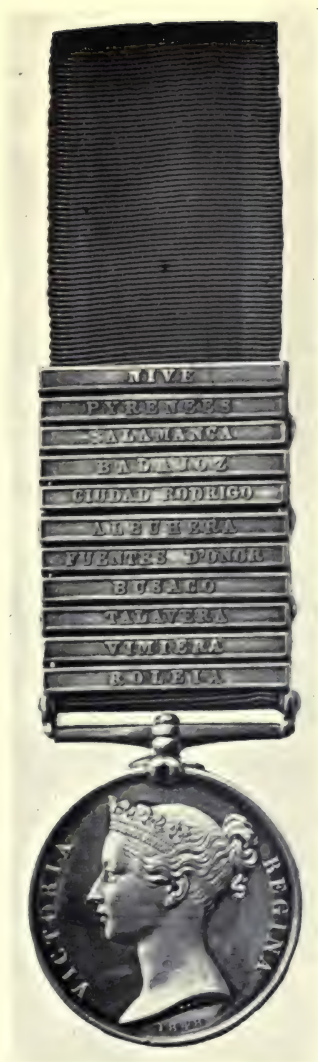 NIVE
PYRENEES
SALAMANCA
BADAJOZ
CIUDAD RODRIGO
ALBUHERA
FUENTES D'ONOR
BUSACO
TALAVERA
VIMIERA
ROLEIA
VICTORIA REGINA
1848